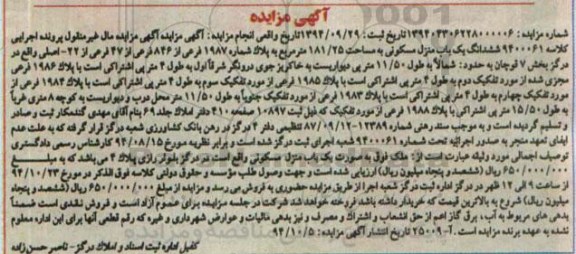 آگهی مزایده
شماره مزایده : ۱۳۹۴۰۴۳۰۶۲۲۸۰۰۰۰۰۶ تاریخ ثبت : ۱۳۹۴/۰۹/۲۹ تاریخ واقعی انجام مزایده : آگهی مزایده آگهی مزایده مال غیرمنقول پرونده اجرایی
کلاسه ۹۴۰۰۰۶۱ ششدانگ یک باب منزل مسکونی به مساحت ۱۸۱/۲۵ مترمربع به پلاک شماره ۱۹۸۷ فرعی از ۸۴۶ فرعی از ۴۷ فرعی از ۲۲- اصلی واقع در
درگز بخش ۷ قوچان به حدود: شمالاً به طول ۱۱/۵۰ متر پی دیواریست به خاکریز جوی درونگر شرقاً اول به طول ۴ متر پی اشتراکی است با پلاک ۱۹۸۶ فرعی
مجزی شده از مورد تفکیک دوم به طول ۴ متر پی اشتراکی است با پلاک ۱۹۸۵ فرعی از مورد تفکیک سوم به طول ۴ متر پی اشتراکی است با پلاک ۱۹۸۴ فرعی از
مورد تفکیک چهارم به طول ۴ متر پی اشتراکی است با پلاک ۱۹۸۳ فرعی از مورد تفکیک جنوباً به طول ۱۱/۵۰ متر محل درب و دیواریست به کوچه ۸ متری غرباً
به طول ۱۵/۵۰ متر پی اشتراکی با پلاک ۱۹۸۸ فرعی از مورد تفکیک که ذیل ثبت ۱۰۸۹۷ صفحه ۴۱۰ دفتر املاک جلد ۶۹ بنام آقای مهدی گندمکار ثبت و صادر
و تسلیم گردیده است و به موجب سند رهنی شماره ۱۲۳۸۹-۸۷/۰۹/۱۲ تنظیمی دفتر ۴ درگز در رهن بانک کشاورزی شعبه درگز قرار گرفته که به علت عدم
ایفای تعهد منجر به صدور اجرائیه تحت شماره ۹۴۰۰۰۶۱ شعبه اجرای ثبت درگز شده است و برابر نظریه مورخ ۹۴/۰۸/۱۵ کارشناس رسمی دادگستری
توصیف اجمالی مورد وثیقه عبارت است از: ملک فوق به صورت یک باب منزل مسکونی واقع است در درگز بلوار رازی پلاک ۴ می باشد که به مبلغ
۶۵۰/۰۰۰/۰۰۰ ریال (ششصد و پنجاه میلیون ریال) ارزیابی شده است و جهت وصول طلب مؤسسه و حقوق دولتی کلاسه فوق الذکر در مورخ ۹۴/۱۰/۲۳
از ساعت ۹ الی ۱۲ ظهر در درگز اداره ثبت درگز شعبه اجرا از طریق مزایده حضوری به فروش می رسد و مزایده از مبلغ ۶۵۰/۰۰۰/۰۰۰ ریال (ششصد و پنجاه
میلیون ریال) شروع به بالاترین قیمت که خریدار داشته باشد فروخته خواهد شد شرکت در جلسه مزایده برای عموم آزاد است و فروش نقدی است ضمناً
بدهی های مربوط به آب، برق گاز اعم از حق انشعاب و اشتراک و مصرف و نیز بدهی مالیات و عوارض شهرداری و غیره که رقم قطعی آنها برای این اداره معلوم
نشده به عهده برنده مزایده است. آ-۲۵۰۰۹ تاریخ انتشار آگهی مزایده : ۹۴/۱۰/۵
کفیل اداره ثبت اسناد و املاک درگز - ناصر حسن زاده